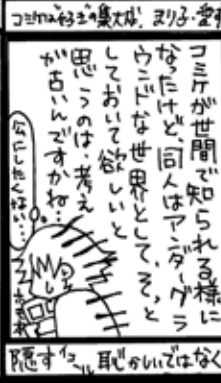 コミケは好きの集大成。まり子・愛
コミケが世間で知られる様に
なったけど、同人はアンダーグラ
ウンドな世界として、そっと
しておいて欲しいと
思うのは、考え
が古いんですかね…
公にしたくない…
隠すイコール恥かしいではなく